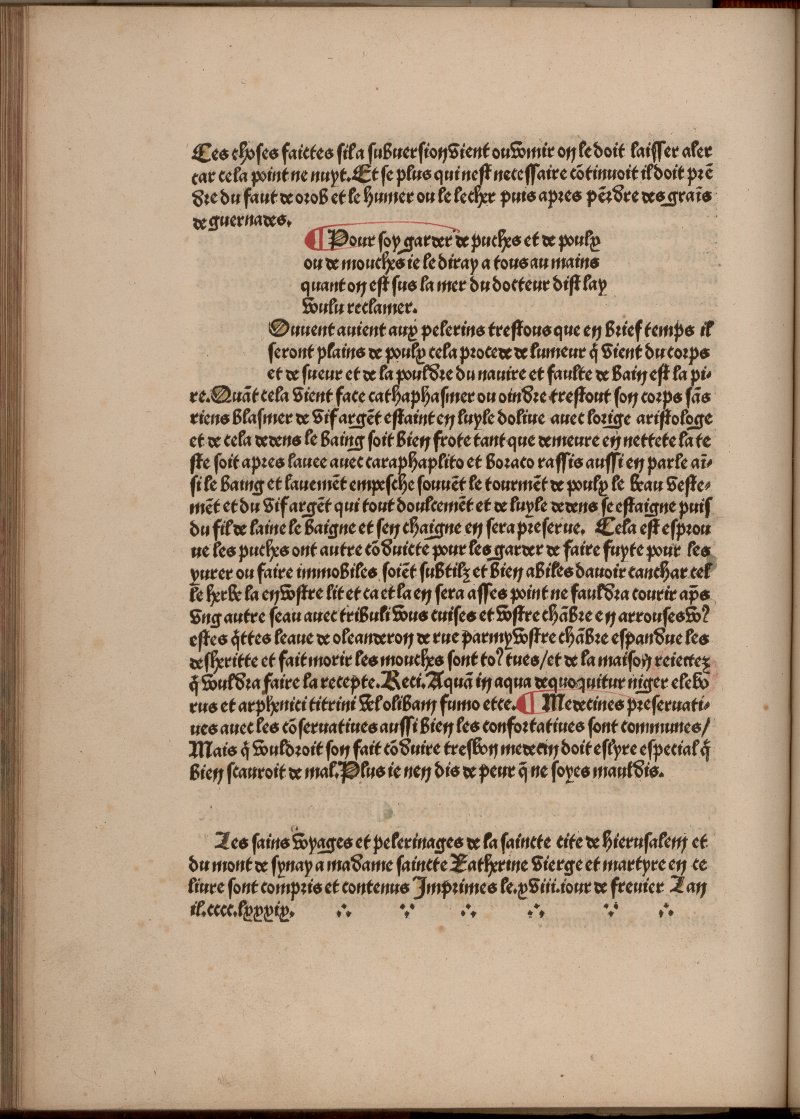 Ces choses faictes sil a subuersion vient ou vomir on le doit laisser aler
car cela point ne nuyt. Et se plus qui nest necessaire cōtinuoit il doit prē
dre du faut de orob et le humer ou le lecher puis apres pērdre des grais̄
de guernades.
¶ Pour soy garder de puches et de poulx
ou de mouches ie le diray a tous au mains
quant on est sus la mer du docteur dist lay
voulu reclamer.
Ouuent auient aux pelerins trestous que en brief temps il
seront plains de poulx cela procede de lumeur q̄ vient du corps
et de sueur et de la pouldre du nauire et faulte de bain est la pi-
re. Quāt cela vient face cathaphasmer ou oindre trestout son corps sās
riens blasmer de vif argēt estaint en luyle doliue auec lorige aristologe
et de cela dedens le baing soit bien frote tant que demeure en nettete la te
ste soit apres lauee auec caraphaplito et boraco rassis aussi en parle aī-
si le baing et lauemēt empesche souuēt le tourmēt de poulx le beau veste-
mēt et du vif argēt qui tout doulcemēt et de luyle dedens se estaigne puis
du fil de laine le baigne et sen chaigne en sera preserue. Cela est esprou
ue les puches ont autre cōduicte pour les garder de faire fuyte pour les
yurer ou faire immobiles soiēt subtilz et bien abiles dauoir tanchar cel
le herbe la en vostre lit et ca et la en sera asses point ne fauldra courir ap̄s
vng autre seau auec tribuli vous cuises et vostre chābre en arrouses vo?
estes q̄ttes leaue de oleanderon de rue parmy vostre chābre espandue les
desheritte et fait morir les mouches sont to? tues/et de la maison reiectez
q̄ vouldra faire la recepte. Reci. Aquam in aqua dequoquitur niger elebo
rus et arphenici titrini vel olibam fumo etce. ¶ Medecines preseruati-
ues auec les cōseruatiues aussi bien les confortatiues sont communes/
Mais q̄ vouldroit son fait cōduire tresbon medecin doit eslyre especial q̄
bien scauroit de mal. Plus ie nen dis de peur q̄ ne soyes mauldis.
Les sains voyages et pelerinages de la saincte cite de Hierusalem et
du mont de synay a madame saincte Katherine vierge et martyre en ce
liure sont compris et contenus Imprimes le. xviii. iour de freuier Lan
il. cccc. lxxxix.